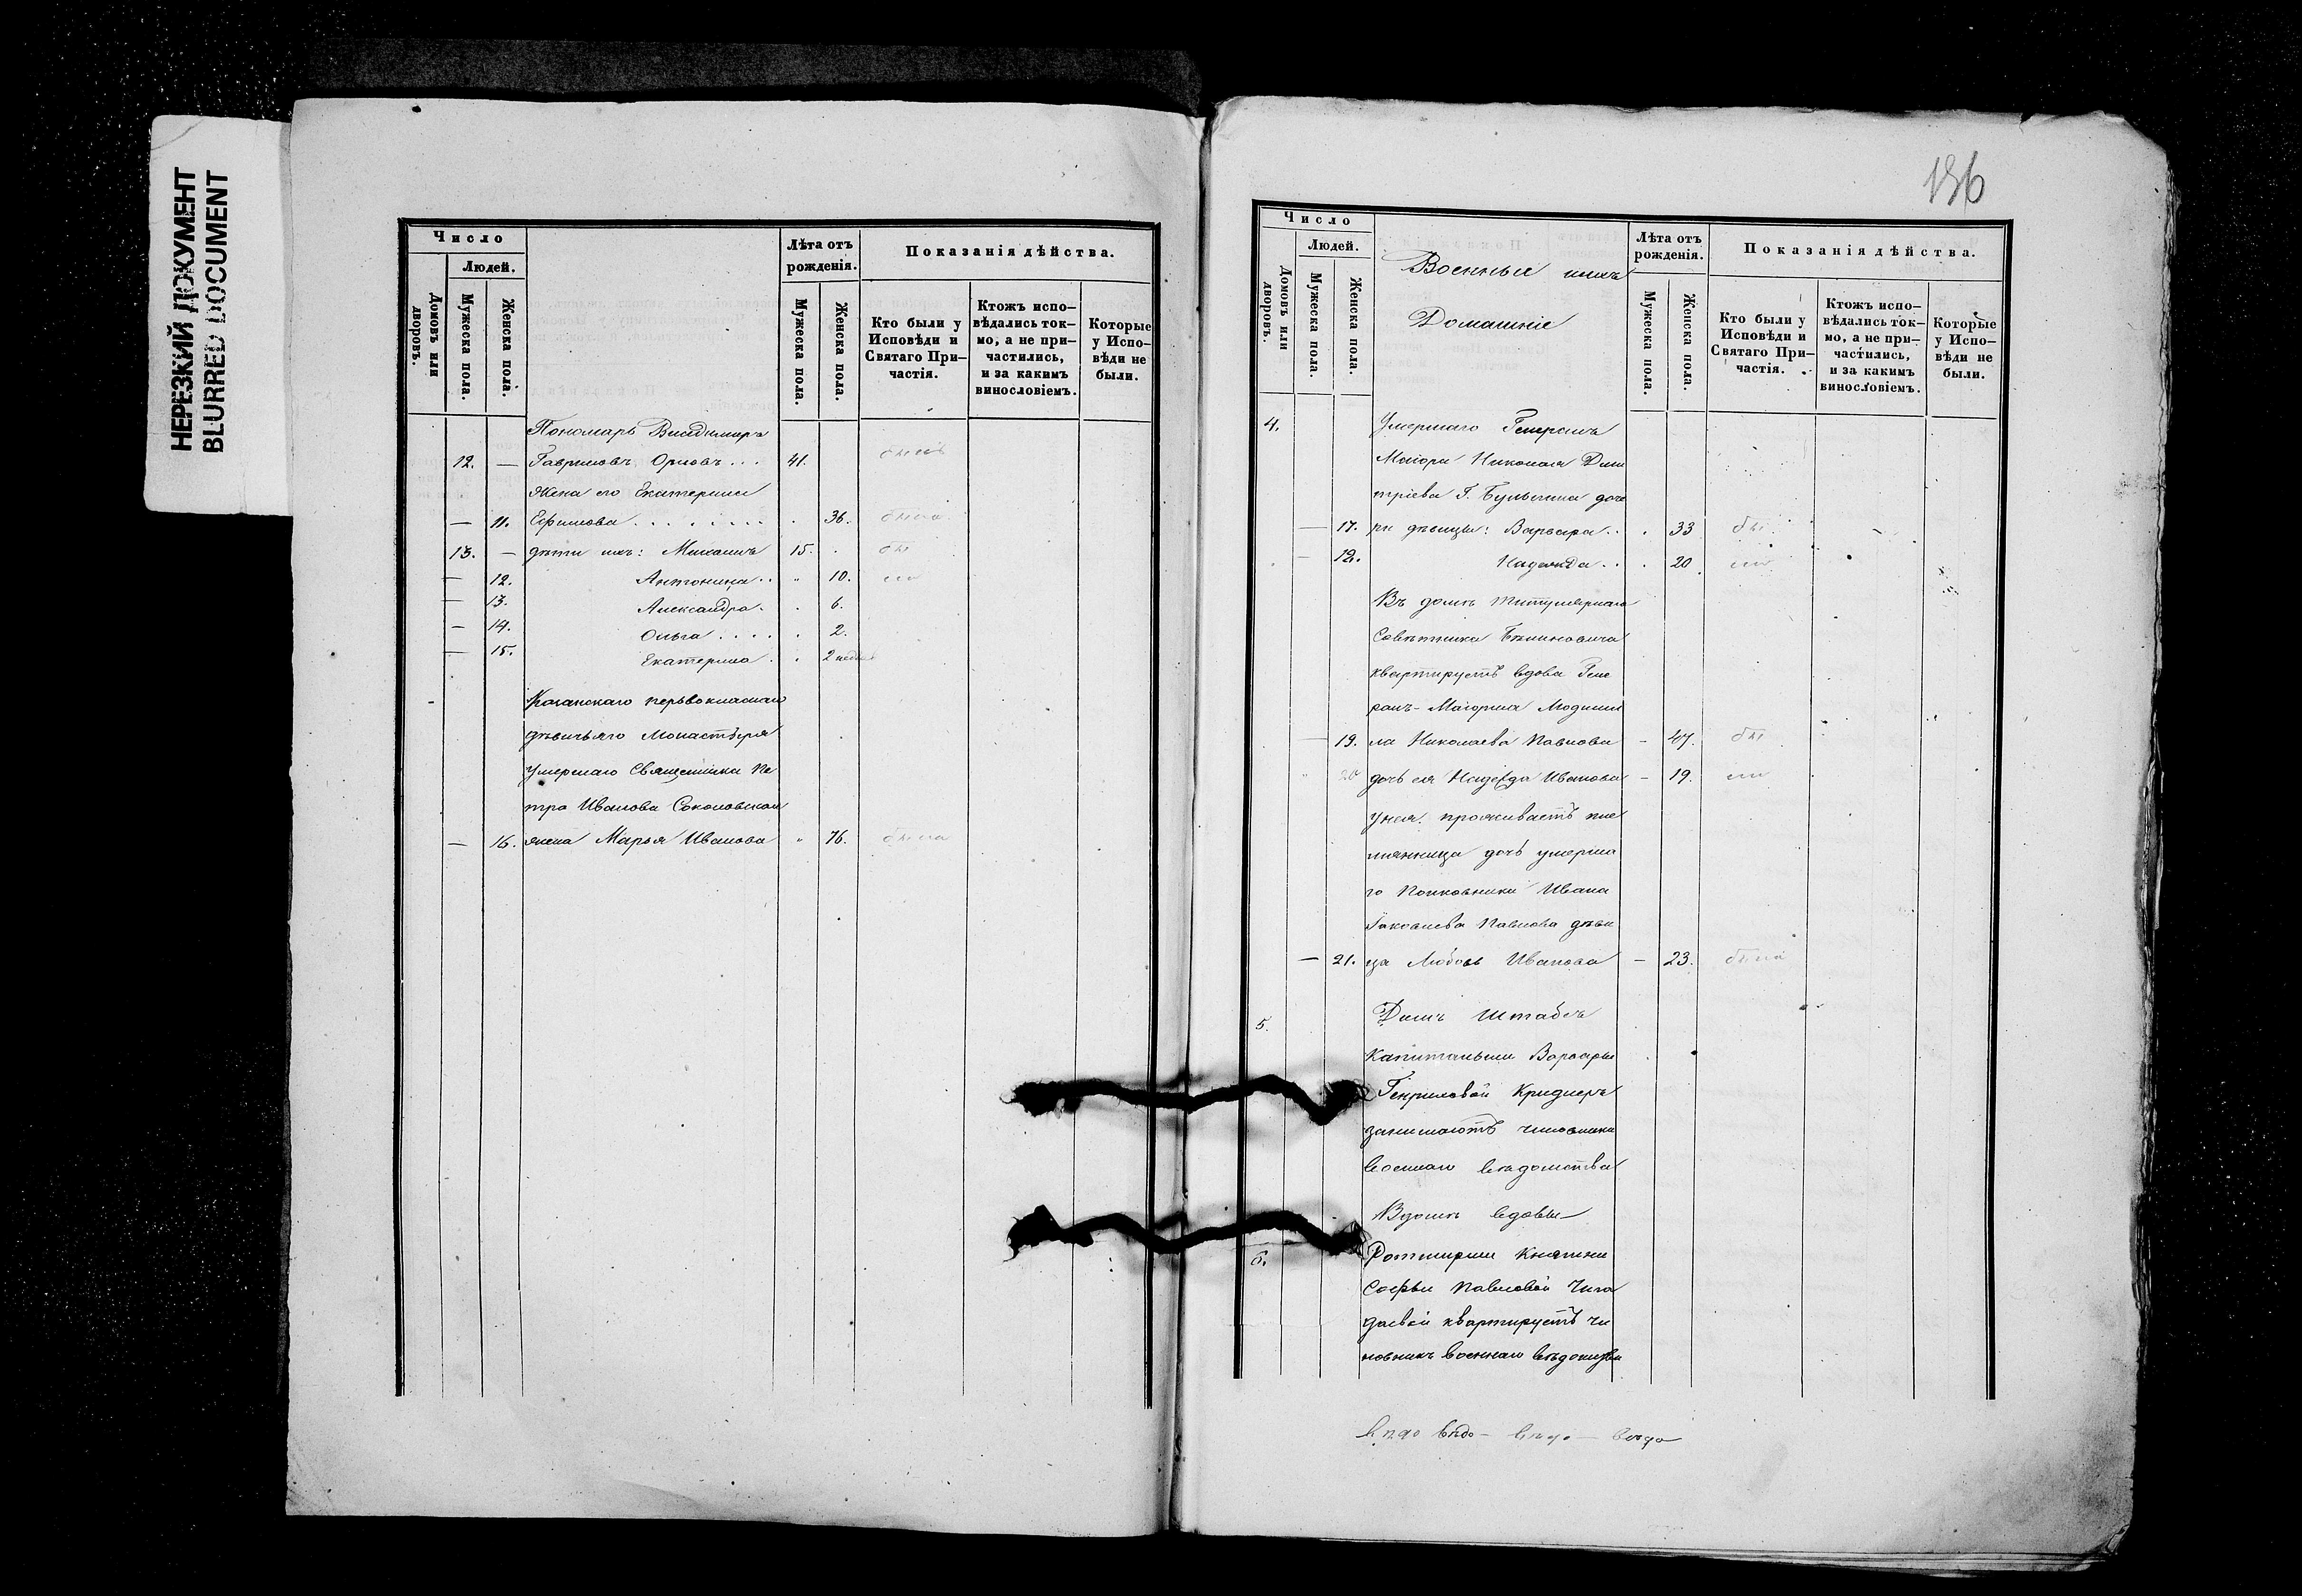 НЕРЕЗКИЙ ДОКУМЕНТ
BLURRED DOCUMENT
Число
Людей.
Домовъ или дворовъ.
Мужеска пола.
Женска пола.
Лѣта отъ рожденія.
Мужеска пола.
Женска пола.
Показанія дѣйства.
Кто были у Исповѣди и Святаго При–частія.
Ктожъ испо–вѣдались ток–мо, а не при–частились, и за какимъ винословіемъ.
Которые у Испо–вѣди не были.
Пономарь Владимиръ
12. — Гавриловъ Орловъ . . . 41. былъ
Жена его Екатерина
— 11. Ефимова . . . . . . . . 36. была
13. — дѣти ихъ: Михаилъ 15. бы
— 12. Антонина . . 10. ли
— 13. Александра . 6.
— 14. Ольга . . . . 2.
— 15. Екатерина . 2 недѣль
Казанскаго первокласнаго
дѣвичьяго Монастыря
умершаго Священника Пе
тра Иванова Соколовскаго
— 16. жена Марья Иванова 76. была
136
Число
Людей.
Домовъ или дворовъ.
Мужеска пола.
Женска пола.
Военные и ихъ
Домашніе
Лѣта отъ рожденія.
Мужеска пола.
Женска пола.
Показанія дѣйства.
Кто были у Исповѣди и Святаго При–частія.
Ктожъ испо–вѣдались ток–мо, а не при–частились, и за какимъ винословіемъ.
Которые у Испо–вѣди не были.
4. Умершаго Генералъ
Маіора Николая Дми
тріева Г. Булыгина доче
— 17. ри дѣвицы: Варвара . . 33 бы
— 18. Надежда . . 20 ли
Въ домѣ титулярнаго
Совѣтника
квартируетъ вдова Гене
ралъ-Маіорша Людмил
— 19. ла Николаева Павлова — 47. бы
20 дочь ея Надежда Иванова — 19. ли
у нея проживаетъ пле
мянница дочь умерша
го Полковника Ивана
Яковлева Павлова дѣви
— 21. ца Любовь Иванова — 23. была
5. Домъ Штабсъ
Капитанши Варвары
Генриховой Криднеръ
занимаютъ чиновники
военнаго вѣдомства
Въ домѣ вдовы
6. Ротмирши Княгини
Софьи Павловой Чега
даевой квартируетъ чи
новникъ военнаго вѣдомства
вѣдо вѣдо — вѣдо — вѣдо